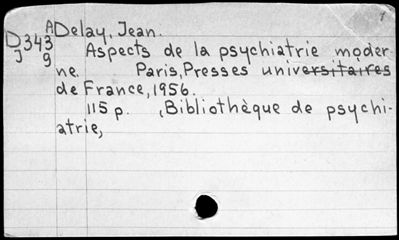 A Delay, Jean.
D343 Aspects de la psychiatrie moder
J 9 ne. Paris, Presses universitaires
de France, 1956.
115 p. , Bibliothèque de psychi-
atrie,